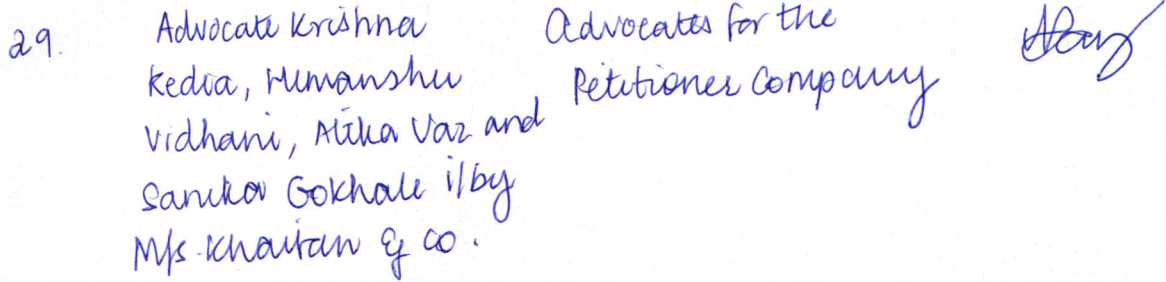 29.
Advocate Krishna
Kedia, Himanshu
Vidhani, Alika Vaz and
Sanika Gokhale i/by
M/s. Khaitan & co.
Advocates for the
Petitioner Company